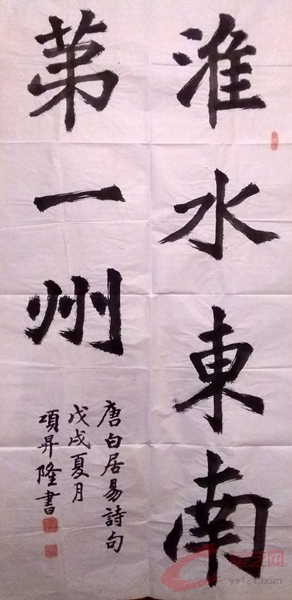 淮水東南
第一州
唐白居易詩句
戊戌夏月
項昇隆書